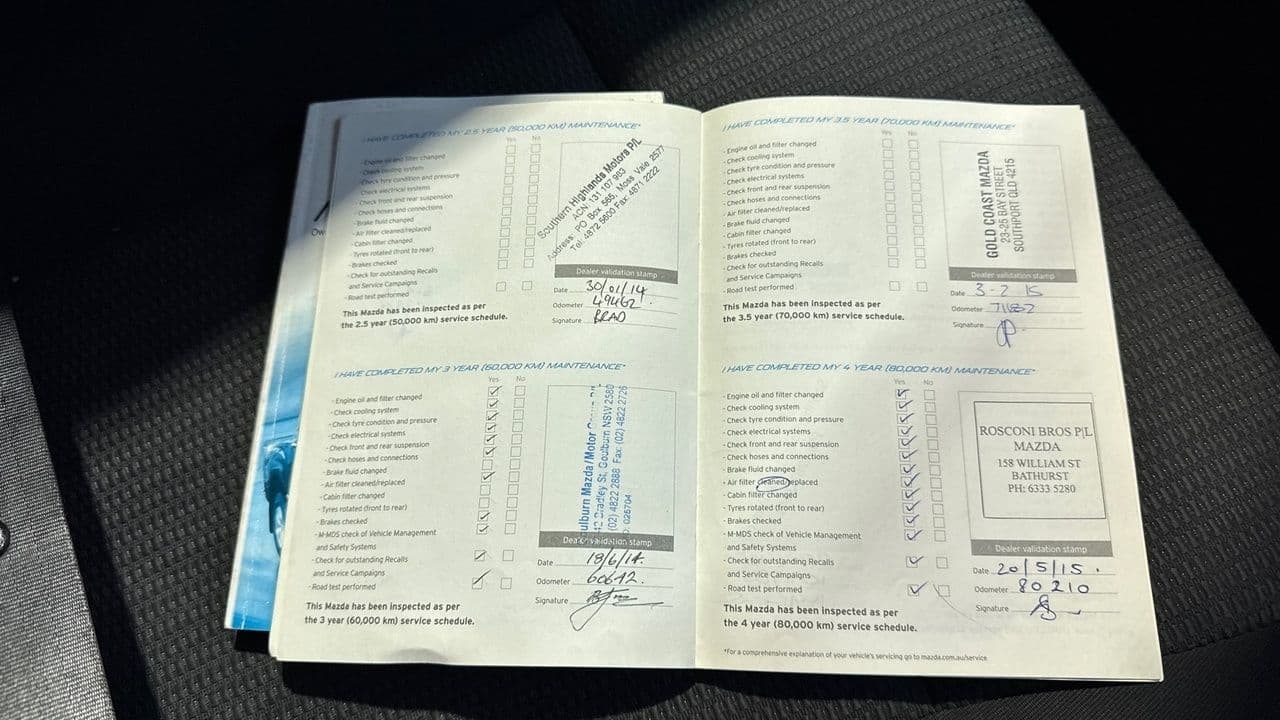 I HAVE COMPLETED MY 2.5 YEAR (50,000 KM) MAINTENANCE*
Yes No
- Engine oil and filter changed
- Check cooling system
- Check tyre condition and pressure
- Check electrical systems
- Check front and rear suspension
- Check hoses and connections
- Brake fluid changed
- Air filter cleaned/replaced
- Cabin filter changed
- Tyres rotated (front to rear)
- Brakes checked
- Check for outstanding Recalls
and Service Campaigns
- Road test performed
This Mazda has been inspected as per
the 2.5 year (50,000 km) service schedule.
Southern Highlands Motors P/L
ACN 131 107 983
Address PO Box 565, Moss Vale 2577
Tel: 4872 5600 Fax: 4871 2222
Dealer validation stamp
Date 30/01/14
Odometer 49462
Signature BRAD
I HAVE COMPLETED MY 3 YEAR (60,000 KM) MAINTENANCE*
Yes No
- Engine oil and filter changed
- Check cooling system
- Check tyre condition and pressure
- Check electrical systems
- Check front and rear suspension
- Check hoses and connections
- Brake fluid changed
- Air filter cleaned/replaced
- Cabin filter changed
- Tyres rotated (front to rear)
- Brakes checked
- M-MDS check of Vehicle Management
and Safety Systems
- Check for outstanding Recalls
and Service Campaigns
- Road test performed
This Mazda has been inspected as per
the 3 year (60,000 km) service schedule.
ulburn Mazda/Motor
Bradley St, Goulburn NSW 2580
(02) 4822 2888 Fax: (02) 4822 2726
026704
Dealer validation stamp
Date 18/6/14.
Odometer 60642.
Signature
I HAVE COMPLETED MY 3.5 YEAR (70,000 KM) MAINTENANCE*
Yes No
- Engine oil and filter changed
- Check cooling system
- Check tyre condition and pressure
- Check electrical systems
- Check front and rear suspension
- Check hoses and connections
- Air filter cleaned/replaced
- Brake fluid changed
- Cabin filter changed
- Tyres rotated (front to rear)
- Brakes checked
- Check for outstanding Recalls
and Service Campaigns
- Road test performed
This Mazda has been inspected as per
the 3.5 year (70,000 km) service schedule.
GOLD COAST MAZDA
23-25 BAY STREET
SOUTHPORT QLD 4215
Dealer validation stamp
Date 3-2 15
Odometer
Signature
I HAVE COMPLETED MY 4 YEAR (80,000 KM) MAINTENANCE*
Yes No
- Engine oil and filter changed
- Check cooling system
- Check tyre condition and pressure
- Check electrical systems
- Check front and rear suspension
- Check hoses and connections
- Brake fluid changed
- Air filter cleaned/replaced
- Cabin filter changed
- Tyres rotated (front to rear)
- Brakes checked
- M-MDS check of Vehicle Management
and Safety Systems
- Check for outstanding Recalls
and Service Campaigns
- Road test performed
This Mazda has been inspected as per
the 4 year (80,000 km) service schedule.
ROSCONI BROS P/L
MAZDA
158 WILLIAM ST
BATHURST
PH: 6333 5280
Dealer validation stamp
Date 20/5/15.
Odometer 80210
Signature
*For a comprehensive explanation of your vehicle's servicing go to mazda.com.au/service